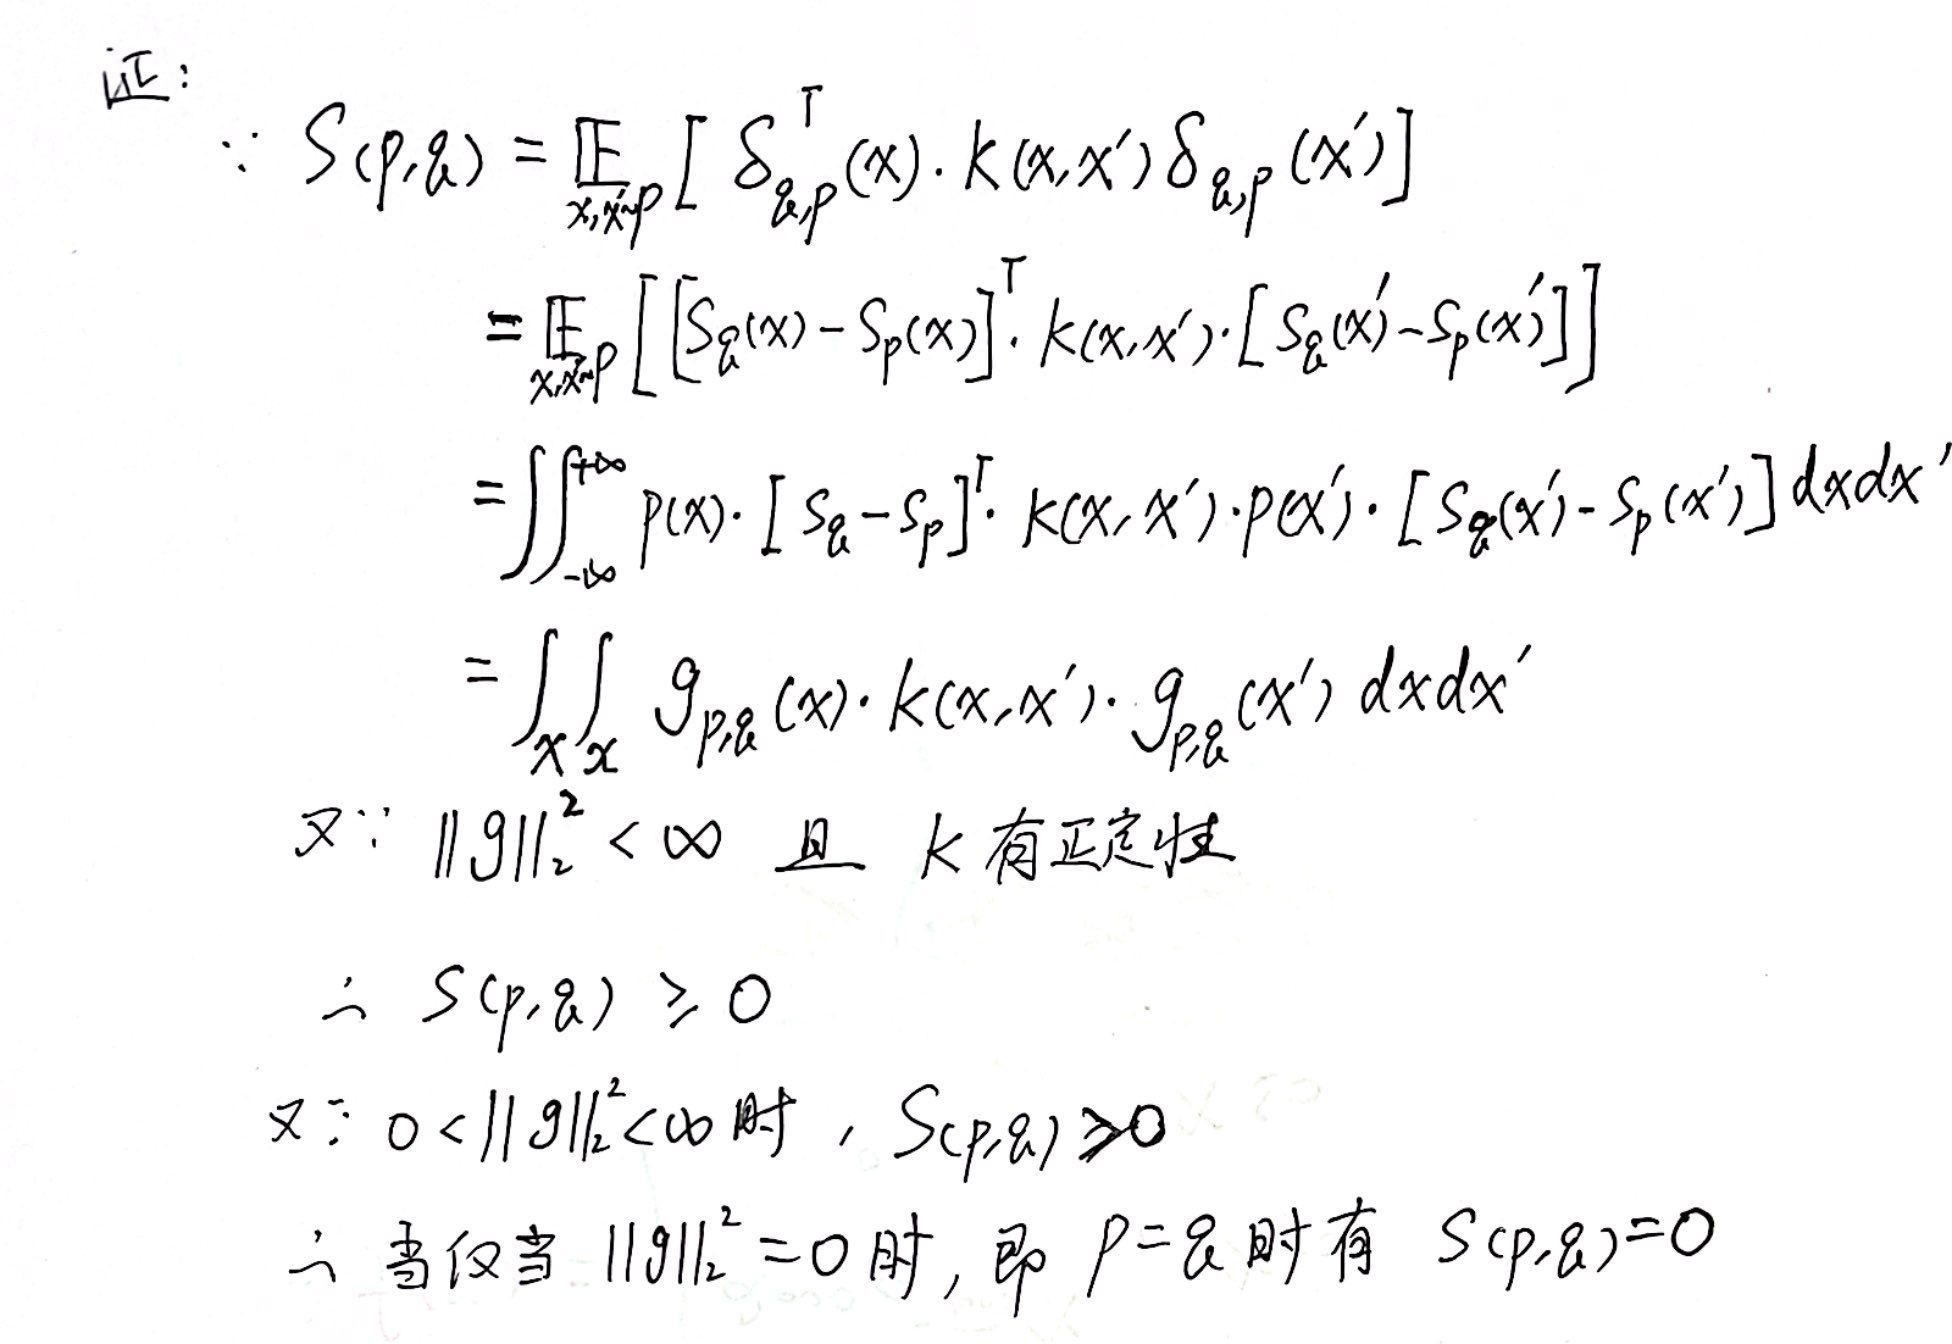 证:
∵ S(p,q) = 𝔼_{x,x'~p} [ δ_{q,p}^T (x) · k(x,x') δ_{q,p} (x') ]
= 𝔼_{x,x'~p} [ [S_q(x) - S_p(x)]^T · k(x,x') · [S_q(x') - S_p(x')] ]
= ∬_{-∞}^{+∞} p(x) · [S_q - S_p]^T · k(x,x') · p(x') · [S_q(x') - S_p(x')] dxdx'
= ∫_x ∫_x g_{p,q} (x) · k(x,x') · g_{p,q} (x') dxdx'
又∵ ||g||_2^2 < ∞ 且 k 有正定性
∴ S(p,q) ≥ 0
又∵ 0 < ||g||_2^2 < ∞ 时, S(p,q) > 0
∴ 当仅当 ||g||_2^2 = 0 时, 即 p = q 时有 S(p,q) = 0